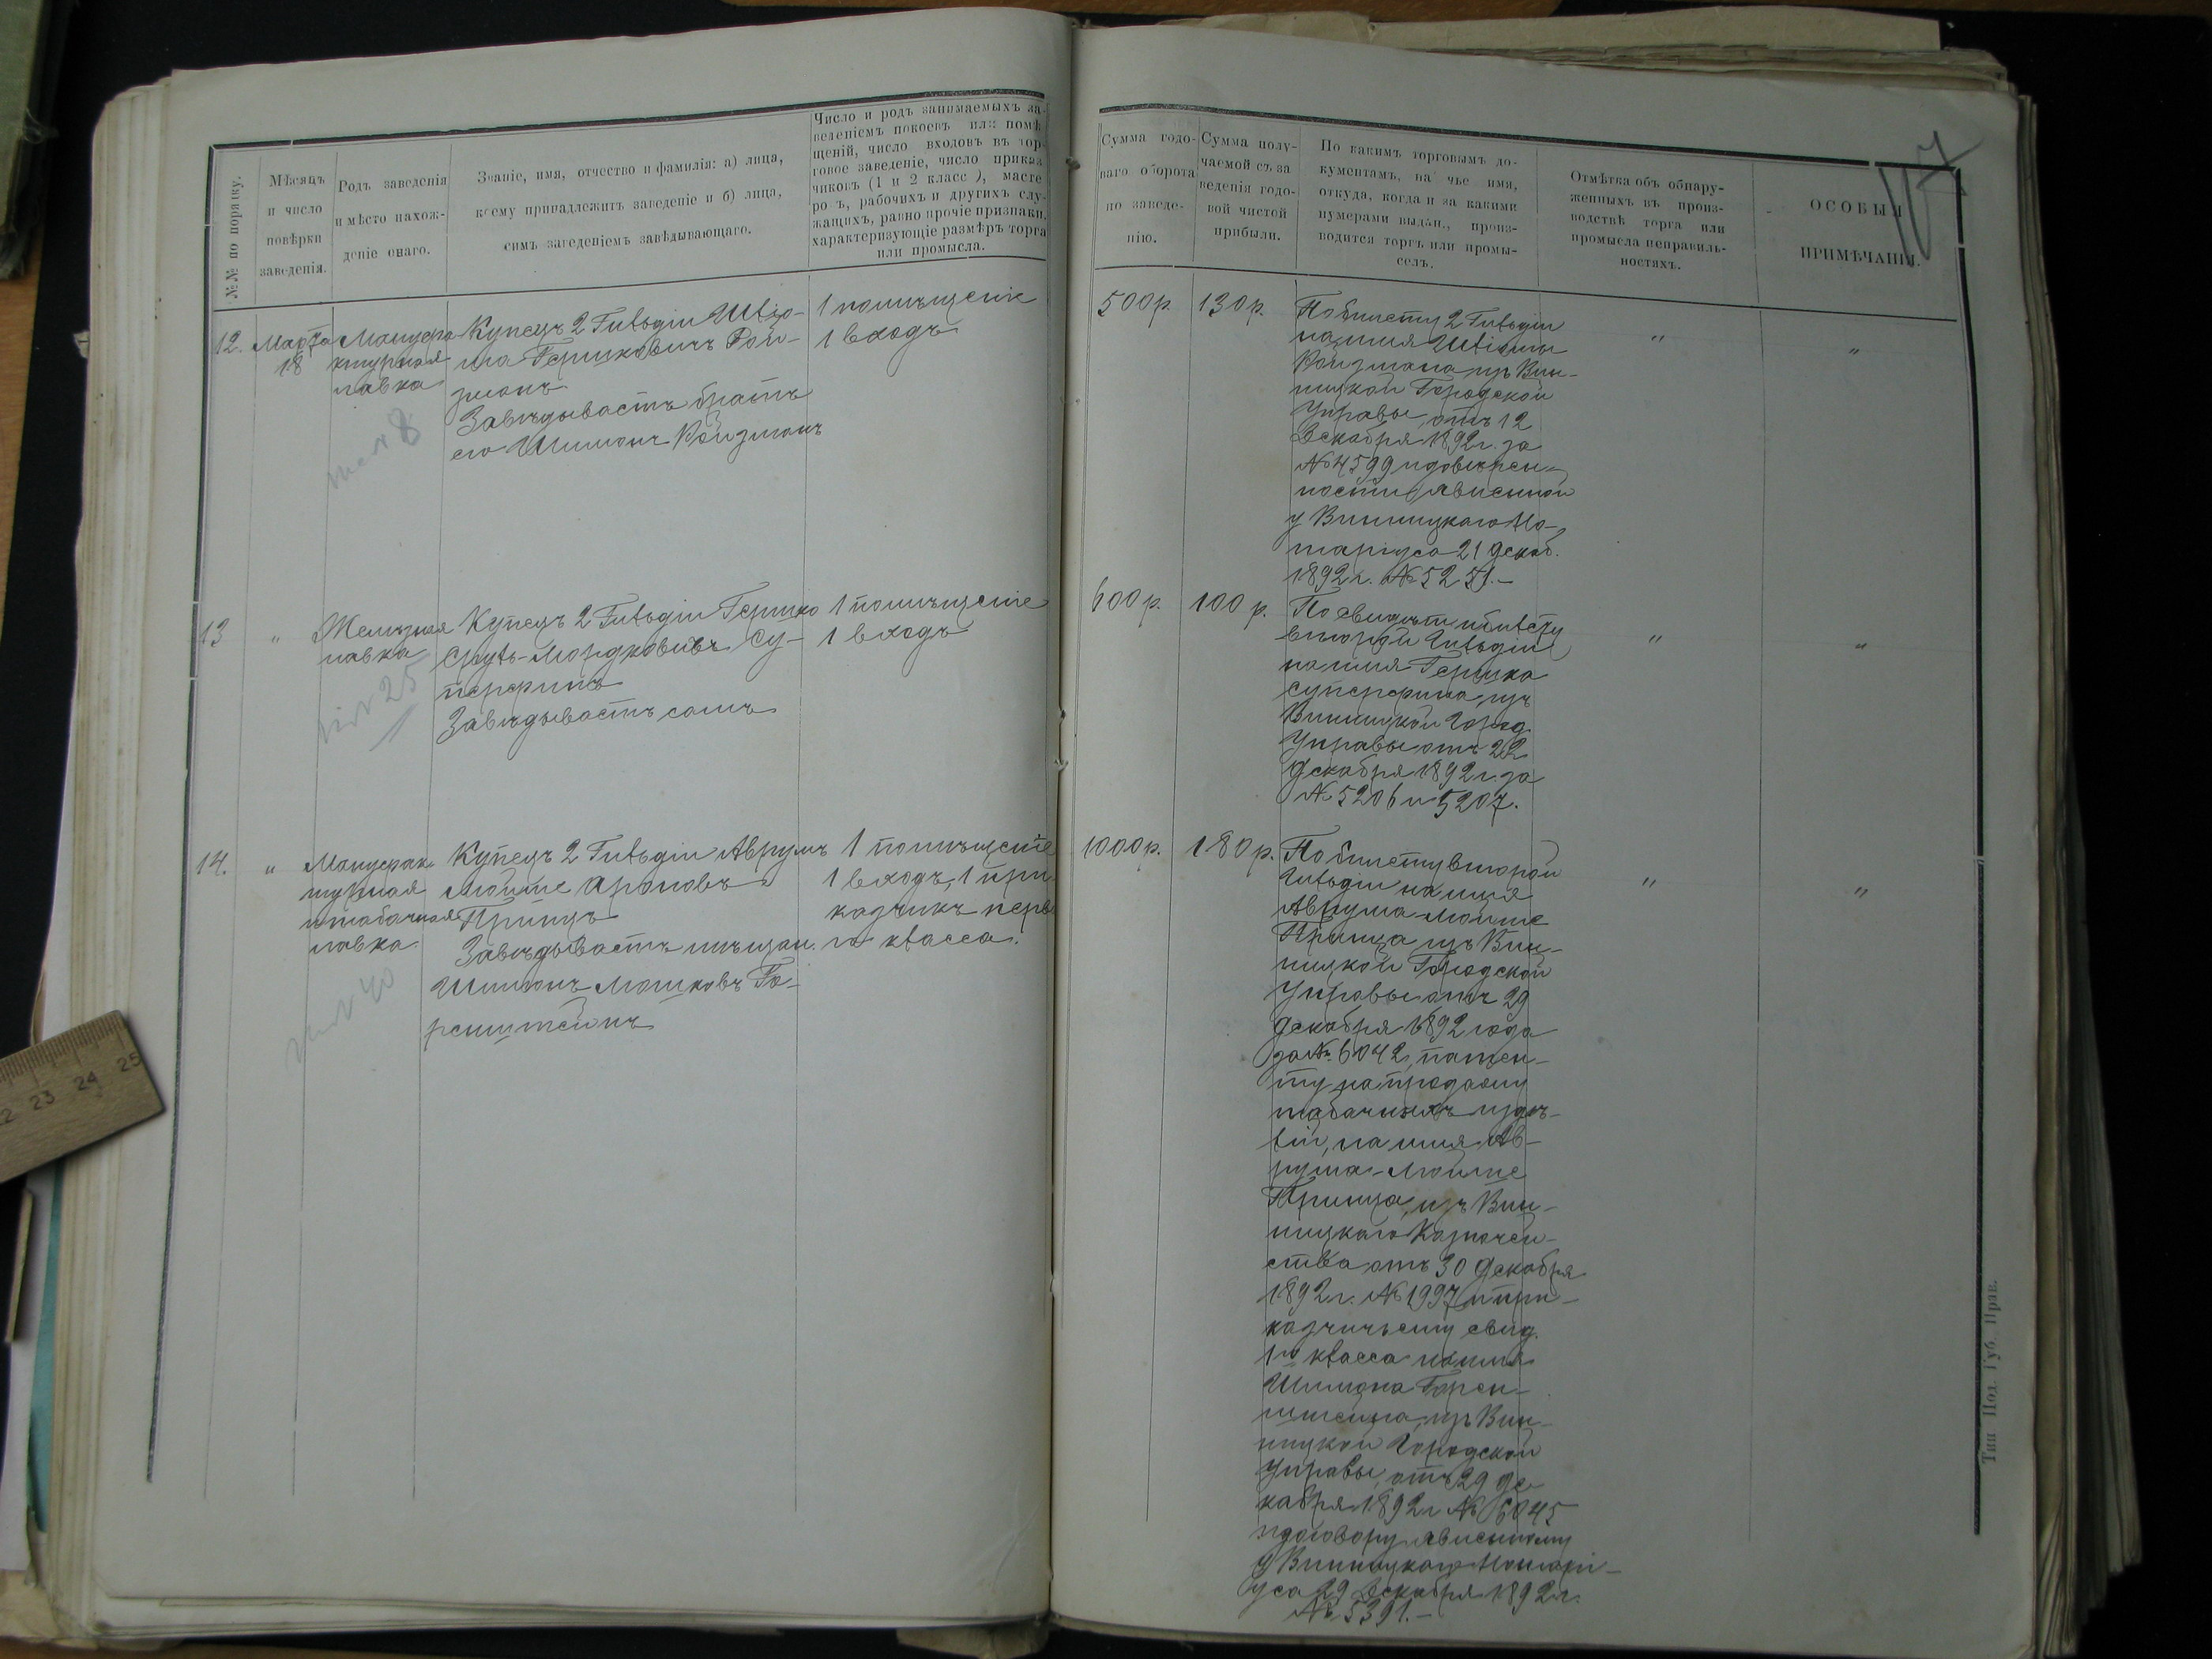 №№ по порядку.
Мѣсяцъ
и число
повѣрки
заведенія.
Родъ заведенія
и мѣсто нахож-
деніе онаго.
Званіе, имя, отчество и фамилія: а) лица,
коему принадлежитъ заведеніе и б) лица,
симъ заведеніемъ завѣдывающаго.
Число и родъ занимаемыхъ за-
веденіемъ покоевъ или помѣ
щеній, число входовъ въ тор-
говое заведеніе, число приказ
чиковъ (1 и 2 класс), масте
ро ъ, рабочихъ и другихъ слу-
жащихъ, равно прочіе признаки,
характеризующіе размѣръ торга
или промысла.
Сумма годо-
ваго оборота
по заведе-
нію.
Сумма полу-
чаемой съ за
веденія годо-
вой чистой
прибыли.
По какимъ торговымъ до-
кументамъ, на чье имя,
откуда, когда и за какими
нумерами выдан., произ-
водится торгъ или промы-
селъ.
Отмѣтка объ обнару-
женныхъ въ произ-
водствѣ торга или
промысла неправиль-
ностяхъ.
ОСОБЫЯ
ПРИМѢЧАНІЯ.
12.
Марта
18
Мануфа
ктурная
лавка
Купецъ 2 Гильдіи
Гершковичъ Рой-
зманъ
Завѣдываетъ братъ
его Шимонъ Ройзманъ
1 помѣщеніе
1 входъ
500 р.
130 р.
По билету 2 Гильдіи
на имя
Ройзмана изъ Вин-
ницкой Городской
Управы, отъ 12
Декабря 1892 г. за
№ 4599 и довѣрен-
ности явленной
у Винницкаго Но-
таріуса 21 декаб.
1892 г. № 5251.-
"
"
13
"
Желѣзная
лавка
Купецъ 2 Гильдіи Гершко
Сруль-Мордковичъ Су-
перфинъ
Завѣдываетъ самъ
1 помѣщеніе
1 входъ
600 р.
100 р.
По свидѣт и билету
второй Гильдіи
на имя Гершка
Суперфина, изъ
Винницкой Город.
Управы отъ 22
Декабря 1892 г. за
№ 5206 и 5207.
"
"
14.
"
Мануфак
турная
и табачная
лавка
Купецъ 2 Гильдіи Аврумъ
Мойше Ароновъ
Принцъ
Завѣдываетъ мѣщан.
Шимонъ Мошковъ Го-
ренштейнъ
1 помѣщеніе
1 входъ, 1 при
казчикъ перв
го класса.
1000 р.
180 р.
По билету второй
Гильдіи на имя
Аврума-Мойше
Принца изъ Вин-
ницкой Городской
Управы отъ 29
Декабря 1892 года
за № 6042, патен-
ту на продажу
табачныхъ издѣ-
лій, на имя Ав-
рума-Мойше
Принца, изъ Вин-
ницкаго Казначей-
ства отъ 30 Декабря
1892 г. № 1997 и при-
казчичьему свид.
1го класса на имя
Шимона Горен-
штейна, изъ Вин-
ницкой Городской
Управы, отъ 29 де
кабря 1892 г № 6045
и договору явленному
у Винницкаго Нотарі-
уса 29 Декабря 1892 г.
№ 5391.-
"
"
Тип. Под. Губ. Прав.
23 24 25